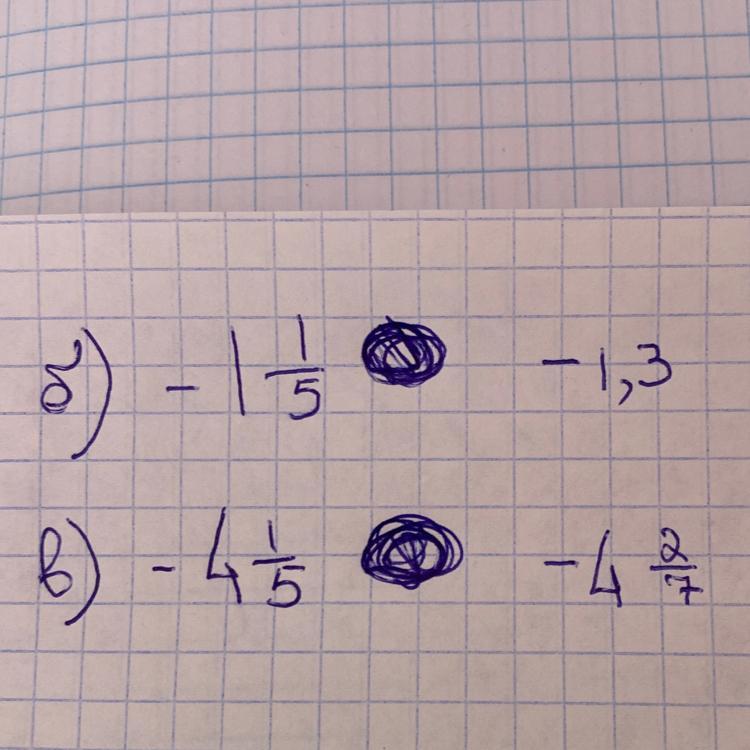 б) - 1 1/5 - 1,3
в) - 4 1/5 - 4 2/7